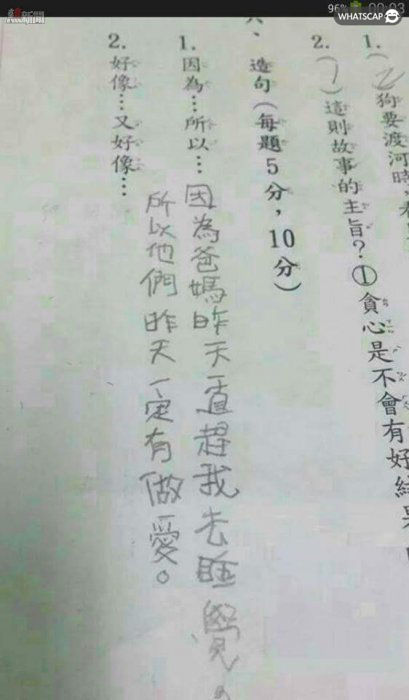 96% 00:03
WHATSCAP
1.
(2)狗要渡河時，看
2.
(1)這則故事的主旨？①貪心是不會有好結果
六、造句(每題5分，10分)
1.
因為…所以…因為爸媽昨天一直趕我去睡覺。
所以他們昨天一定有做愛。
2.
好像…又好像…